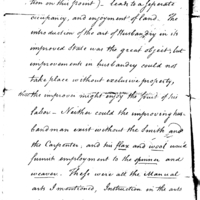 tion on this point) — leads to a separate
occupancy, and enjoyment of land. The
introduction of the art of Husbandry in its
improved State was the great object; but
improvements in husbandry could not
take place without exclusive property,
that the improver might enjoy the fruit of his
labor — Neither could the improving hus-
bandman exist without the Smith and
the Carpenter, and his flax and wool would
furnish employment to the spinner and
weaver. These were all the Manual
arts I mentioned, Instruction in the arts